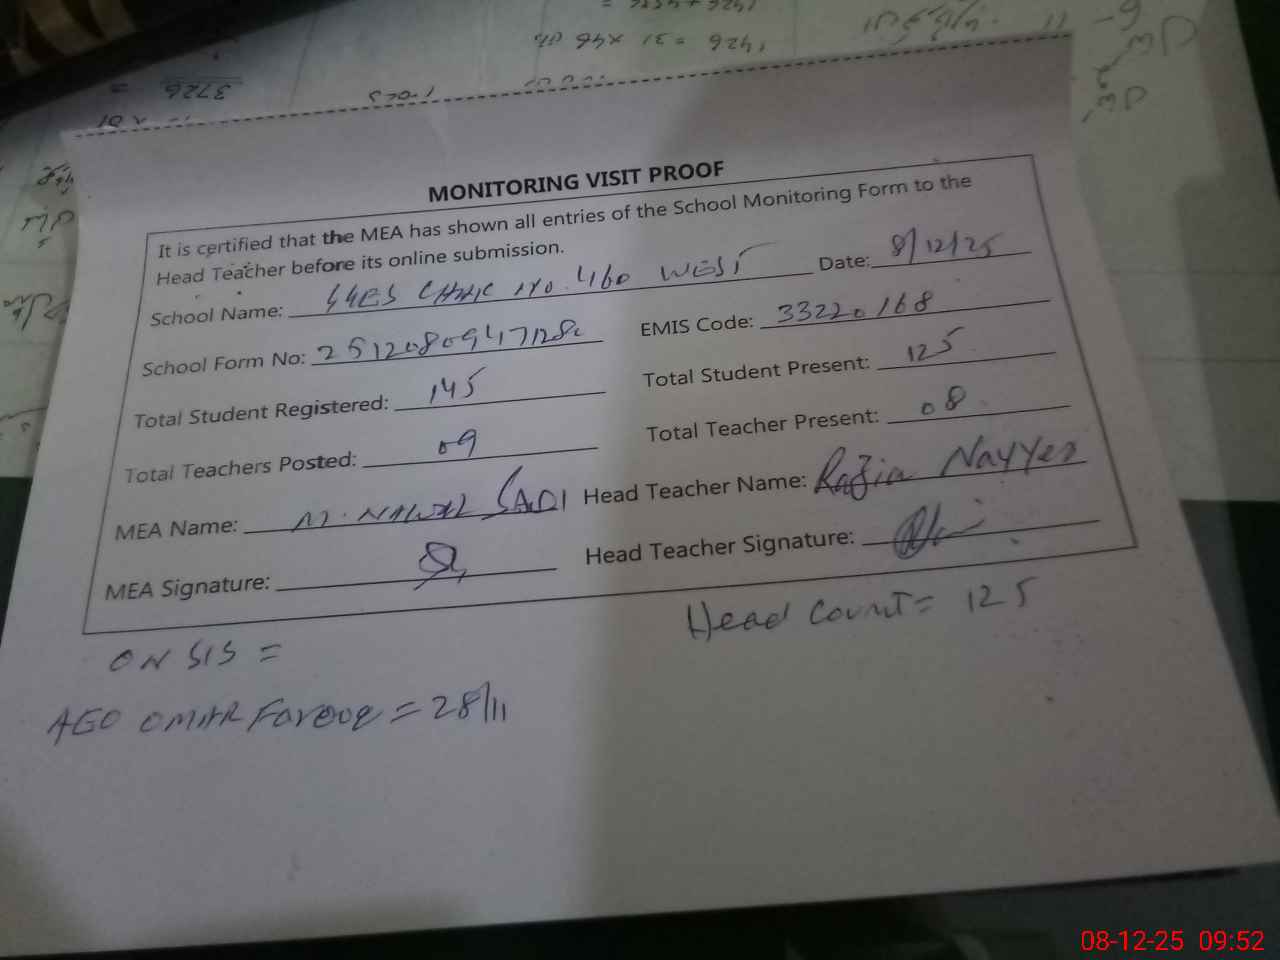 1426 = 31 × 46
3726 =
MONITORING VISIT PROOF
It is certified that the MEA has shown all entries of the School Monitoring Form to the
Head Teacher before its online submission.
School Name: GGES CHAK NO. 460 WEST Date: 8/12/25
School Form No: EMIS Code: 33220168
Total Student Registered: 145 Total Student Present: 125
Total Teachers Posted: 09 Total Teacher Present: 08
MEA Name: M. NAWAZ SADI Head Teacher Name: Razia Nayyer
MEA Signature: Head Teacher Signature:
Head Count = 125
ON SIS =
AEO OMAR Farooq = 28/11
08-12-25 09:52